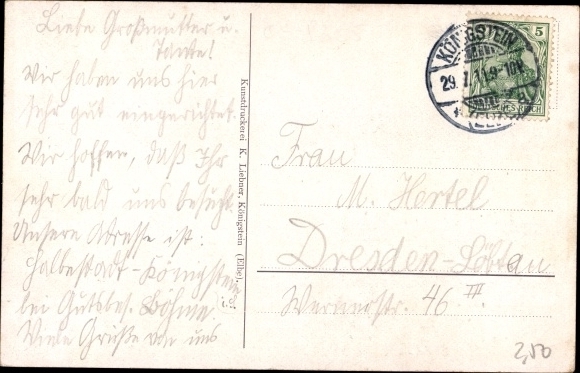 Liebe Großmutter u.
Tante!
Wir haben uns hier
sehr gut eingerichtet.
Wir hoffen, daß Ihr
sehr bald uns besucht.
Unsere Adresse ist:
Halbestadt-Königstein
bei Gutsbes. Böhme.
Viele Grüße von uns
Kunstdruckerei K. Liebner, Königstein (Elbe).
KÖNIGSTEIN
29.7.11.9-10
(ELBE)
5
DEUTSCHES REICH
Frau
M. Hertel
Dresden-Löbtau
Wernerstr. 46 III.
2,50